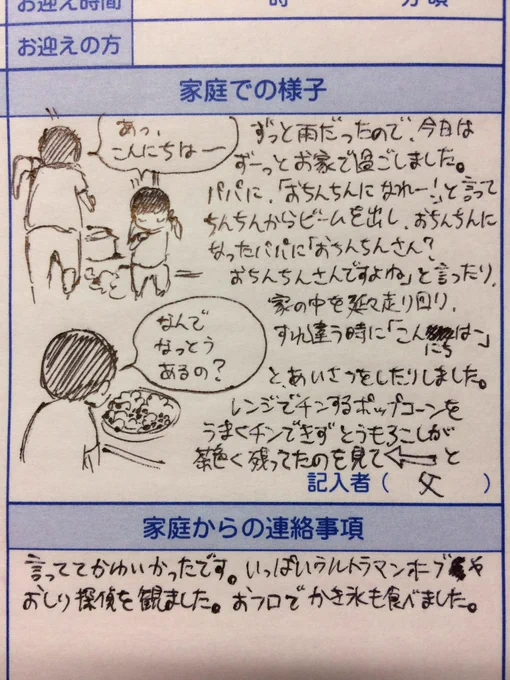 お迎え時間
時
分頃
お迎えの方
家庭での様子
あっ、
こんにちはー
ずっと雨だったので、今日は
ずーっとお家で過ごしました。
パパに、「おちんちんになれー!」と言って
ちんちんからビームを出し、おちんちんに
なったパパに「おちんちんさん?
おちんちんさんですよね」と言ったり、
家の中を延々走り回り、
すれ違う時に「こんにちはー」
と、あいさつをしたりしました。
なんで
なっとう
あるの?
レンジでチンするポップコーンを
うまくチンできずとうもろこしが
茶色く残ってたのを見て⇐と
記入者(父)
家庭からの連絡事項
言っててかわいかったです。いっぱいウルトラマンオーブや
おしり探偵を観ました。おフロでかき氷も食べました。